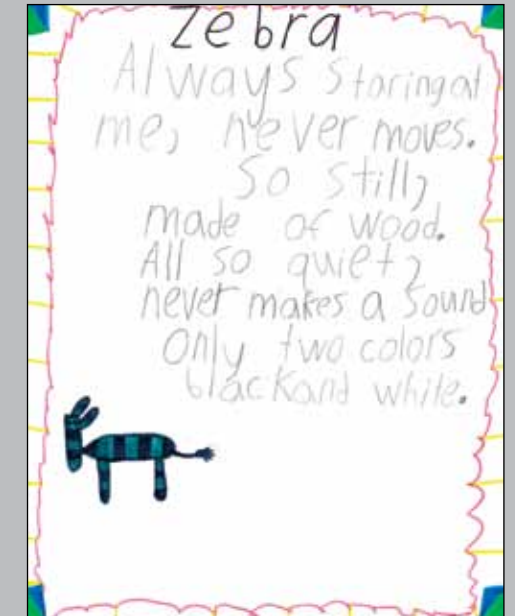 Zebra
Always Staring at
me, never moves.
So still,
made of wood.
All so quiet,
never makes a Sound
Only two colors
black and white.